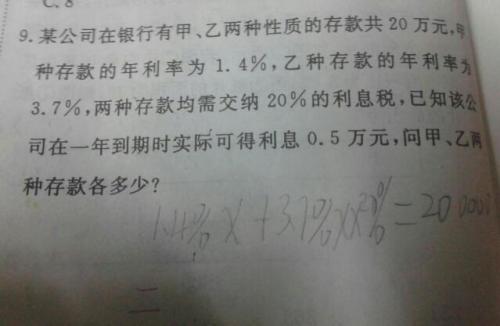 C. 8
9. 某公司在银行有甲、乙两种性质的存款共 20 万元,甲
种存款的年利率为 1.4%,乙种存款的年利率为
3.7%,两种存款均需交纳 20%的利息税,已知该公
司在一年到期时实际可得利息 0.5 万元,问甲、乙两
种存款各多少?
1.4% X + 3.7% X x 20% = 20 0000
二